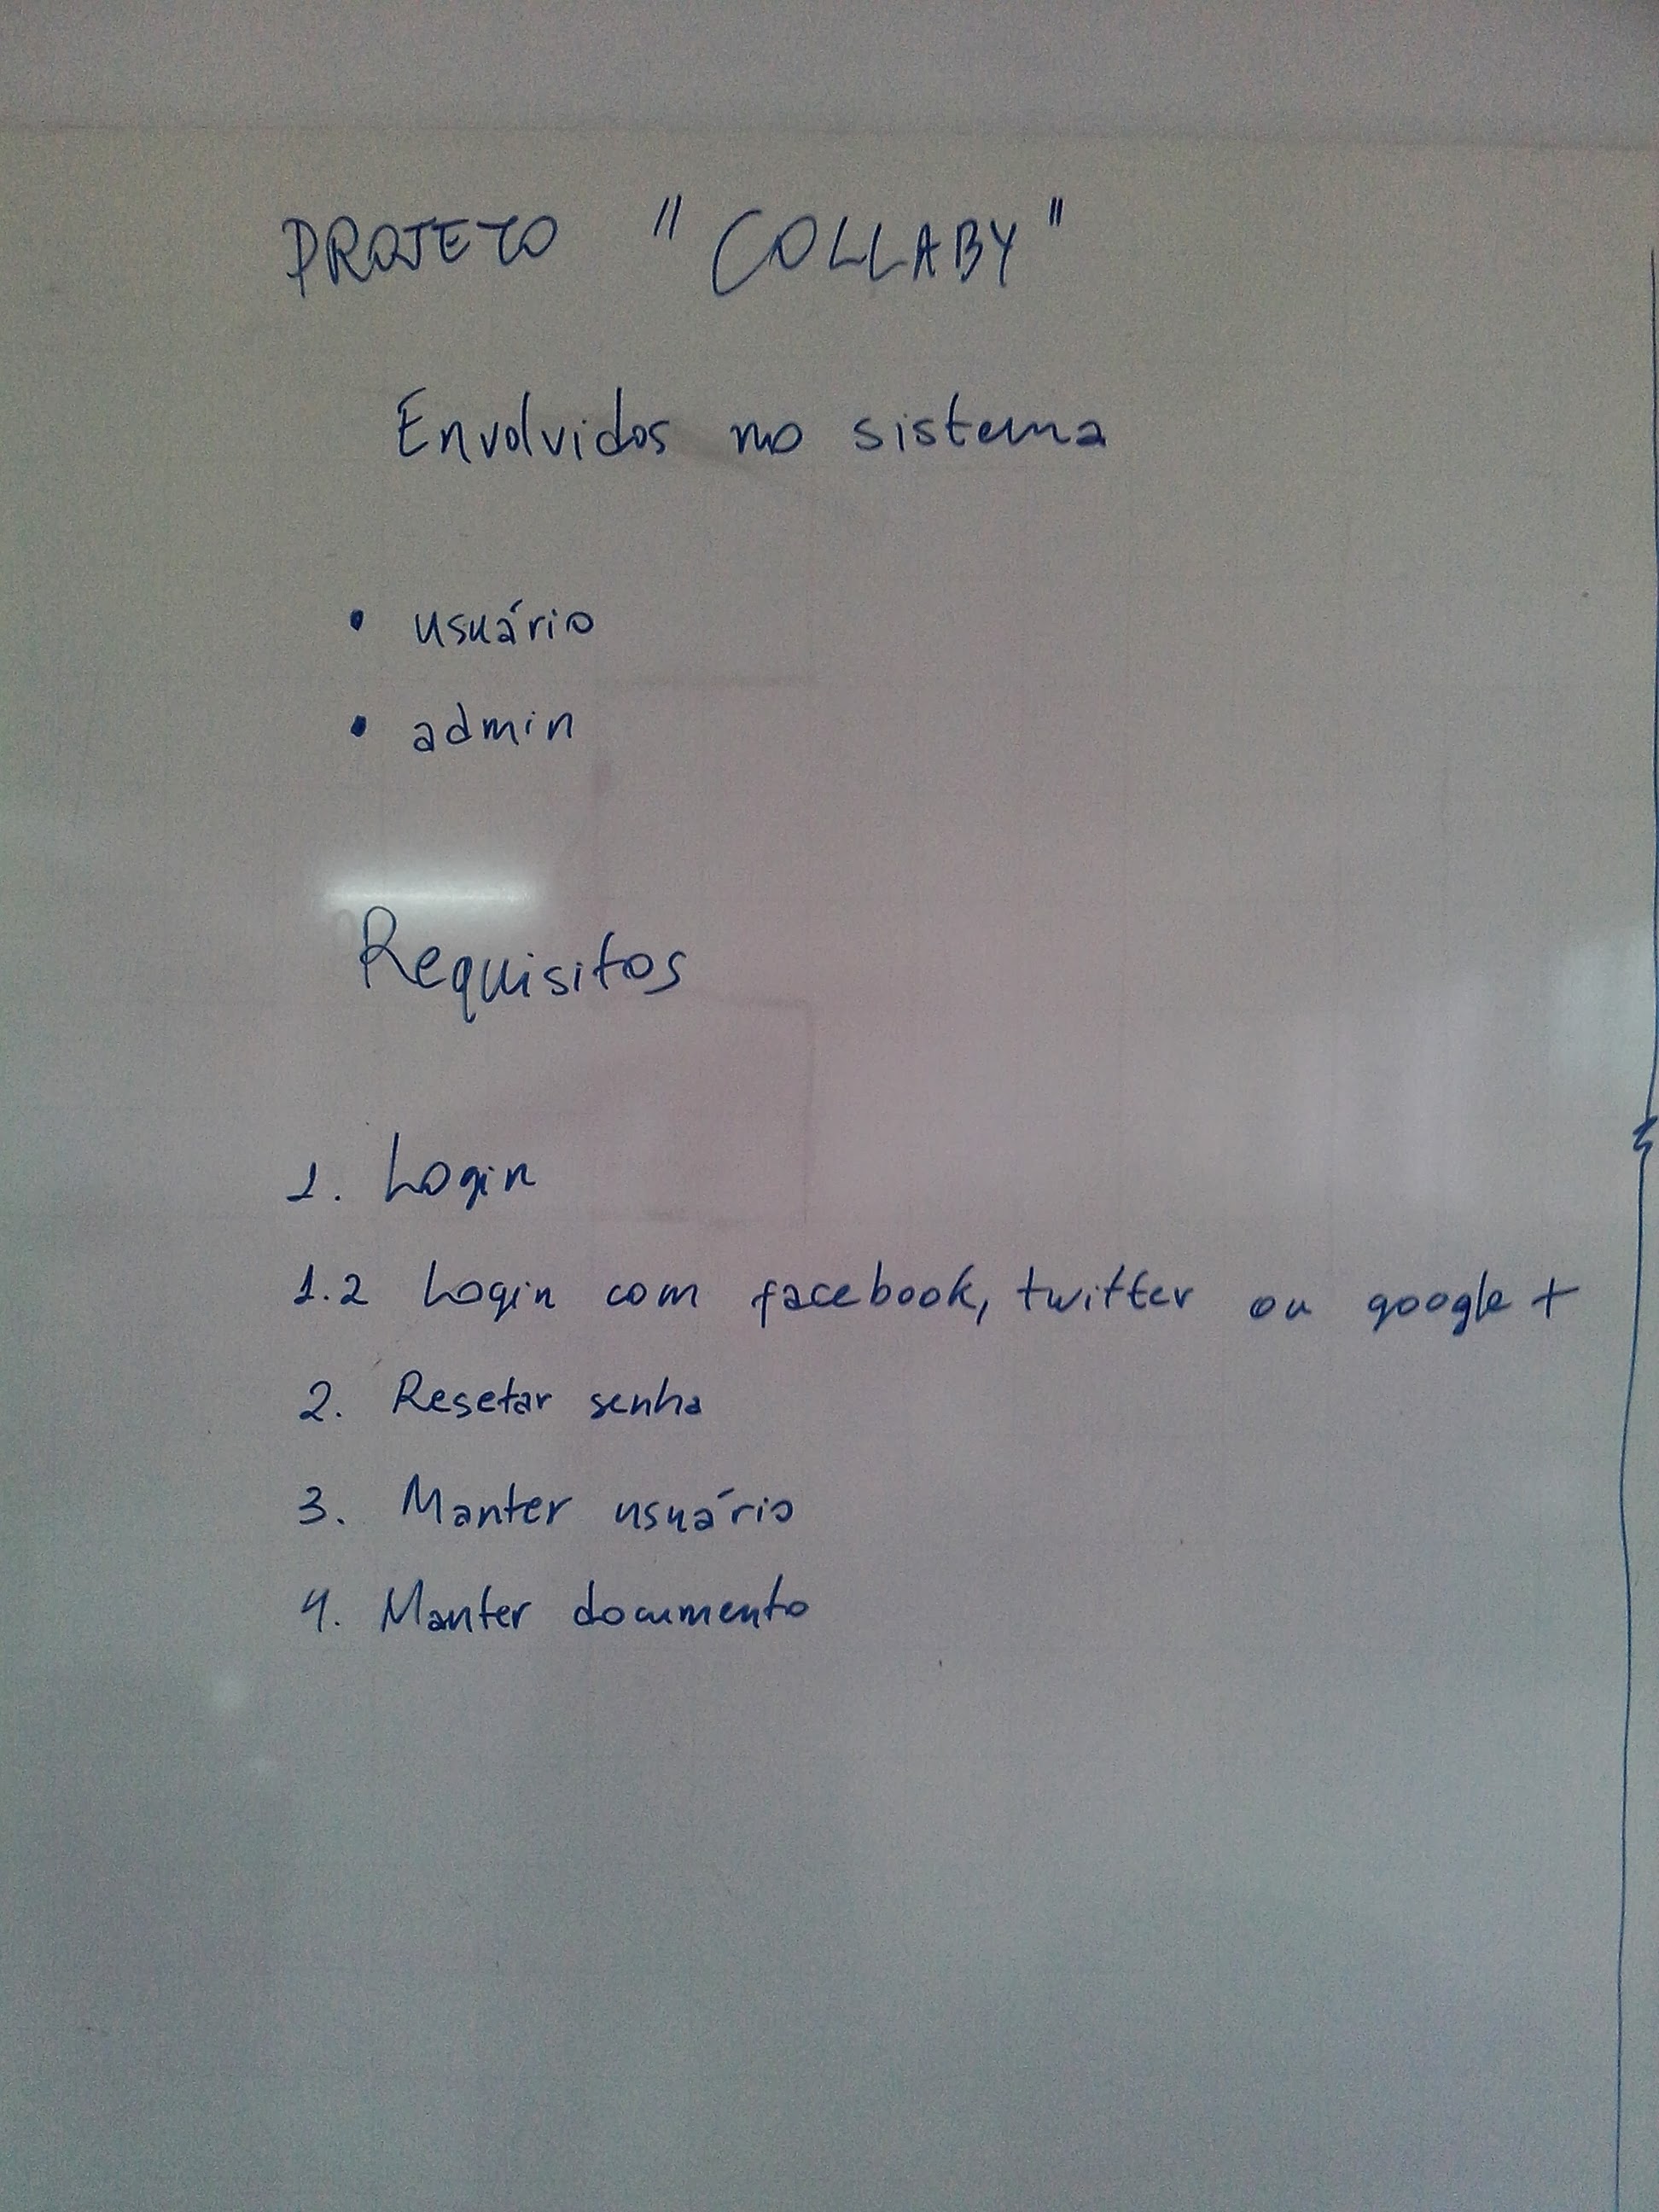 PROJETO "COLLABY"
Envolvidos no sistema
• usuário
• admin
Requisitos
1. Login
1.2 Login com facebook, twitter ou google +
2. Resetar senha
3. Manter usuário
4. Manter documento